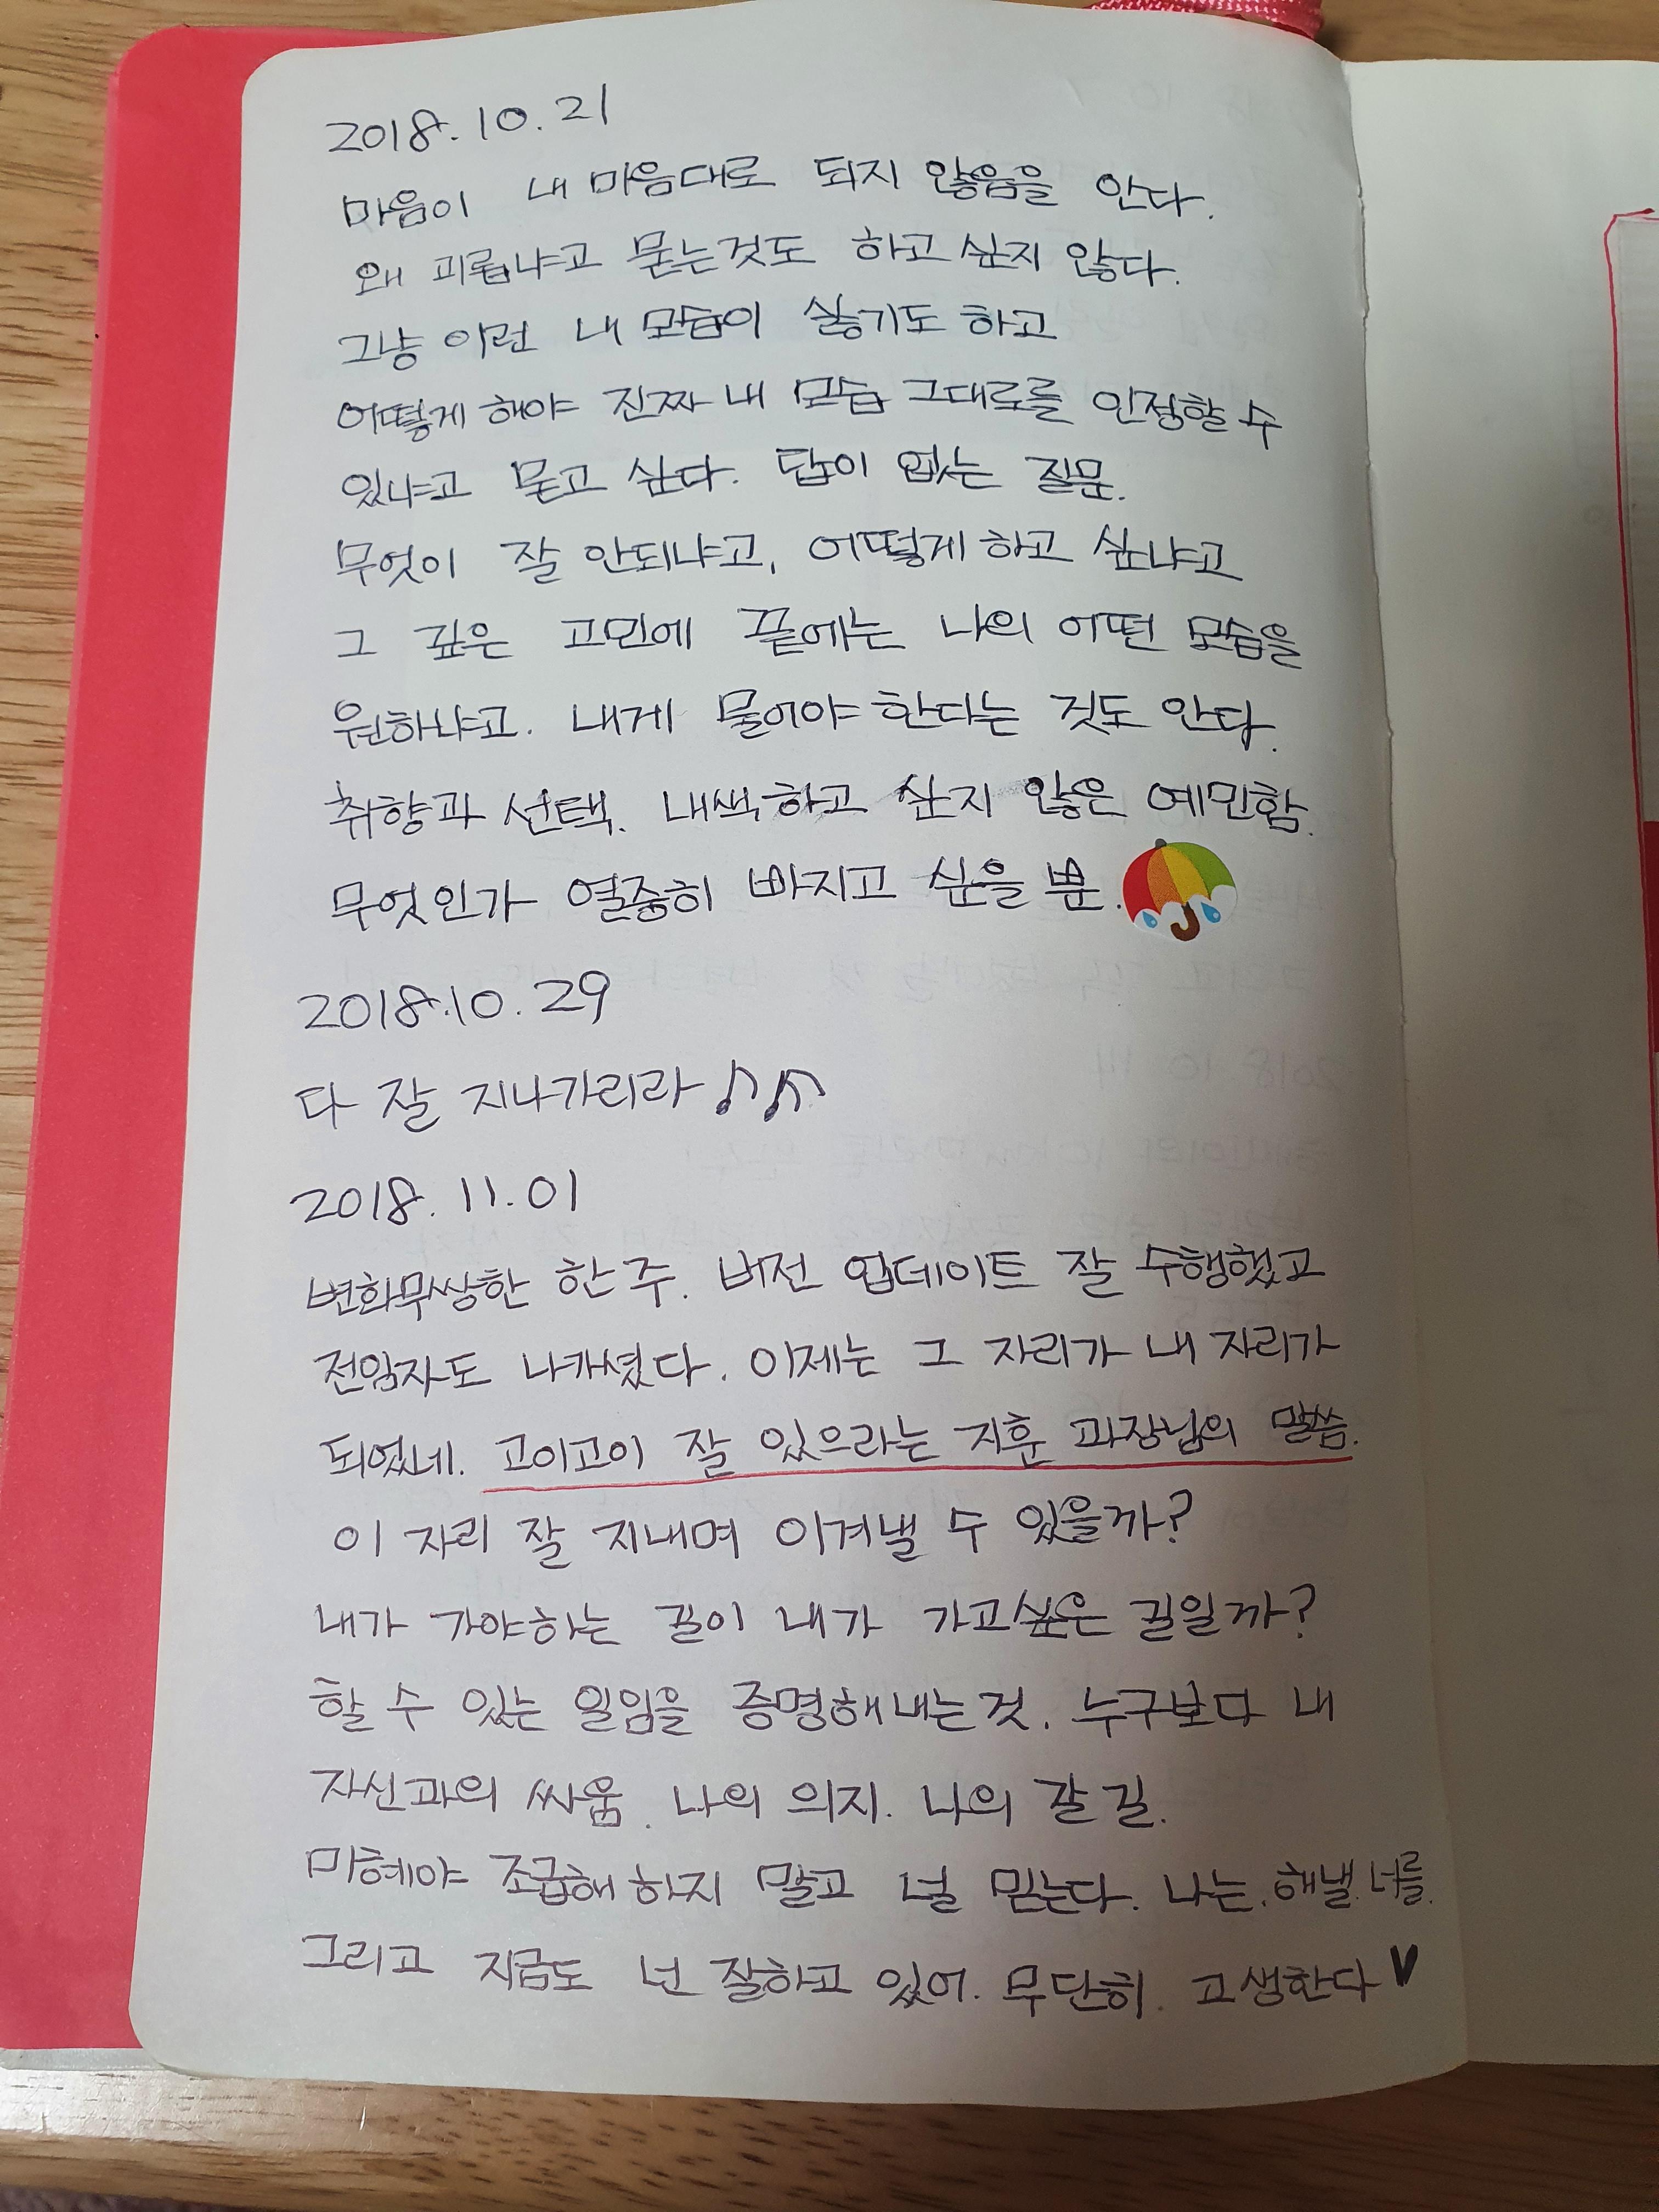 2018.10.21
마음이 내 마음대로 되지 않음을 안다.
왜 괴롭냐고 묻는것도 하고 싶지 않다.
그냥 이런 내 모습이 싫기도 하고
어떻게 해야 진짜 내 모습 그대로를 인정할 수
있냐고 묻고 싶다. 답이 없는 질문.
무엇이 잘 안되냐고, 어떻게 하고 싶냐고
그 깊은 고민에 끝에는 나의 어떤 모습을
원하냐고. 내게 물어야 한다는 것도 안다.
취향과 선택. 내색하고 싶지 않은 예민함.
무엇인가 열중히 빠지고 싶을 뿐.
2018.10.29
다 잘 지나가리라 ♪♫
2018.11.01
변화무쌍한 한 주. 버전 업데이트 잘 수행했고
전임자도 나가셨다. 이제는 그 자리가 내 자리가
되었네. 고이고이 잘 있으라는 지훈 과장님의 말씀.
이 자리 잘 지내며 이겨낼 수 있을까?
내가 가야하는 길이 내가 가고싶은 길일까?
할 수 있는 일임을 증명해내는것. 누구보다 내
자신과의 싸움. 나의 의지. 나의 갈 길.
미혜야 조급해 하지 말고 널 믿는다. 나는. 해낼 너를.
그리고 지금도 넌 잘하고 있어. 무단히. 고생한다♥